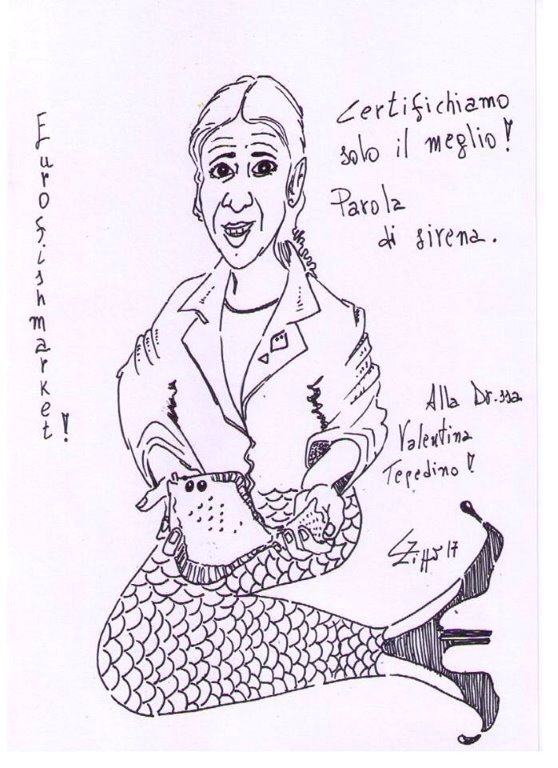 Eurofishmarket!
Certifichiamo
solo il meglio!
Parola
di sirena.
Alla Dr.ssa
Valentina
Tepedino!